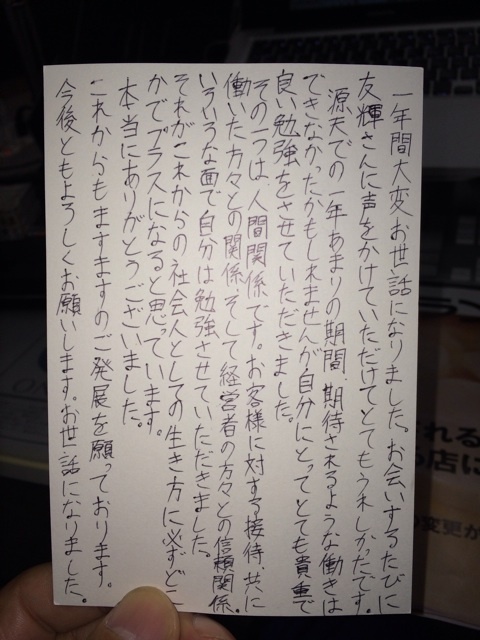 一年間大変お世話になりました。お会いするたびに
友輝さんに声をかけていただけてとてもうれしかったです。
源天での一年あまりの期間、期待されるような働きは
できなかったかもしれませんが、自分にとってとても貴重で
良い勉強をさせていただきました。
その一つは、人間関係です。お客様に対する接待、共に
働いた方々との関係、そして経営者の方々との信頼関係。
いろいろな面で自分は勉強させていただきました。
それがこれからの社会人としての生き方に必ずどこ
かでプラスになると思っています。
本当にありがとうございました。
これからもますますのご発展を願っております。
今後ともよろしくお願いします。お世話になりました。
れる
る店に
変更が